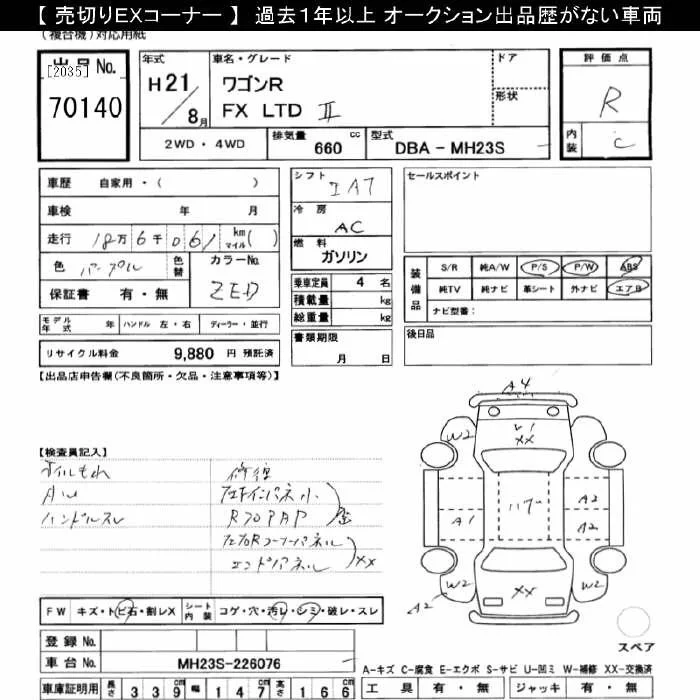 【 売切りEXコーナー 】 過去1年以上 オークション出品歴がない車両
(複合機)対応用紙
出品No.
[2035]
70140
年式
H21/8月
車名・グレード
ワゴンR
FX LTD Ⅱ
ドア
形状
評価点
R
内装
C
2WD・4WD
排気量 660 cc
型式 DBA - MH23S
車歴 自家用・( )
車検 年 月
走行 18万6千061 km マイル( )
色 パープル
色替
カラーNo. ZED
保証書 有・無
シフト IAT
冷房 AC
燃料 ガソリン
乗車定員 4 名
積載量 kg
総重量 kg
セールスポイント
装備品
S/R 純A/W P/S P/W ABS
純TV 純ナビ 革シート 外ナビ エアB
ナビ型番:
モデル年式 年 ハンドル 左・右 ディーラー・並行
リサイクル料金 9,880 円 預託済
書類期限 月 日
後日品
【出品店申告欄(不良箇所・欠品・注意事項等)】
【検査員記入】
オイルもれ
ハンドルスレ
修復
R70PAP
エンドパネル
XX
A4
W2
V1
XX
W2
A1
A2
A2
W2
A2
XX
W2
FW キズ・トビ石・割レX
シート内装 コゲ・穴・汚レ・シミ・破レ・スレ
登録No.
車台No. MH23S-226076
スペア
A-キズ C-腐食 E-エクボ S-サビ U-凹ミ W-補修 XX-交換済
車庫証明用 長さ 339 幅 147 高さ 166
工具 有・無 ジャッキ 有・無